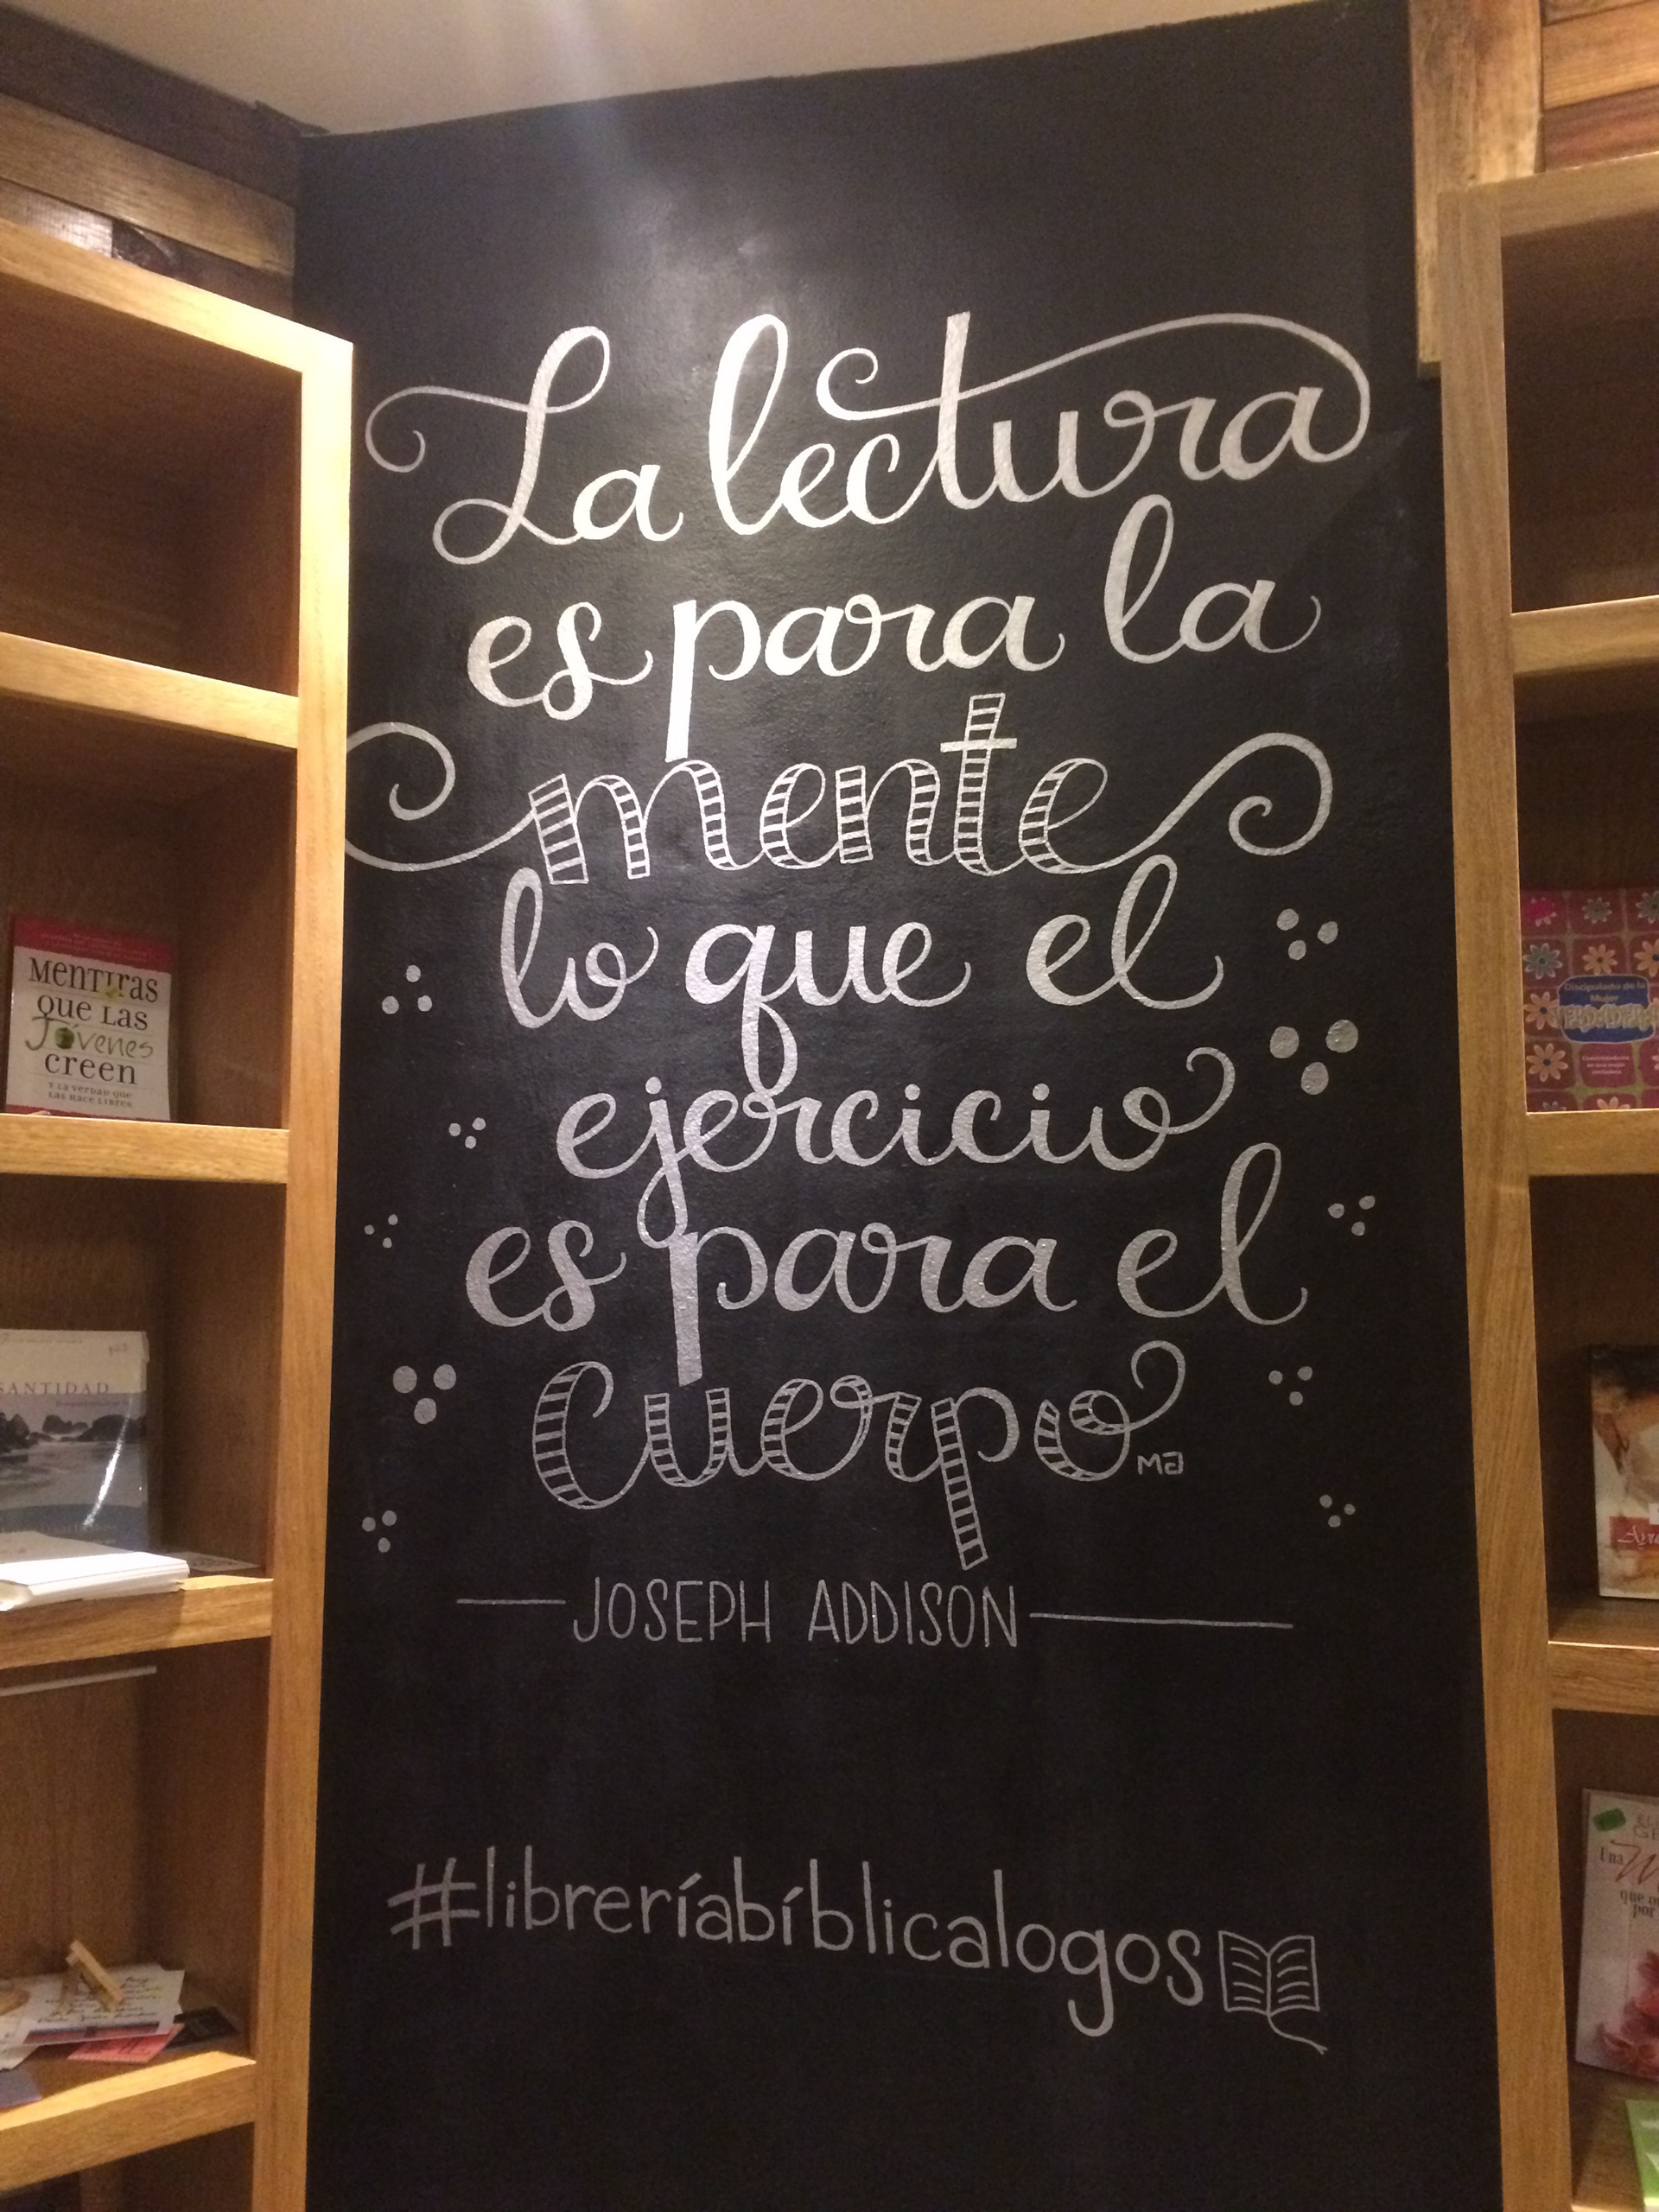 La lectura
es para la
mente
lo que el
ejercicio
es para el
cuerpo
ma
JOSEPH ADDISON
#libreríabíblicalogos
Mentiras
que las
Jóvenes
creen
Y LA VERDAD QUE
LAS HACE LIBRES
SANTIDAD
Discipulado de la
Mujer
VERDADERA
Una
que
por